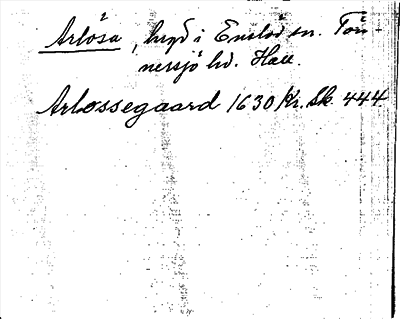 Arlösa, bygd i Enslöv sn. Tön-
nersjö hd. Hall.
Arlossegaard 1630 Kr. Sk. 444